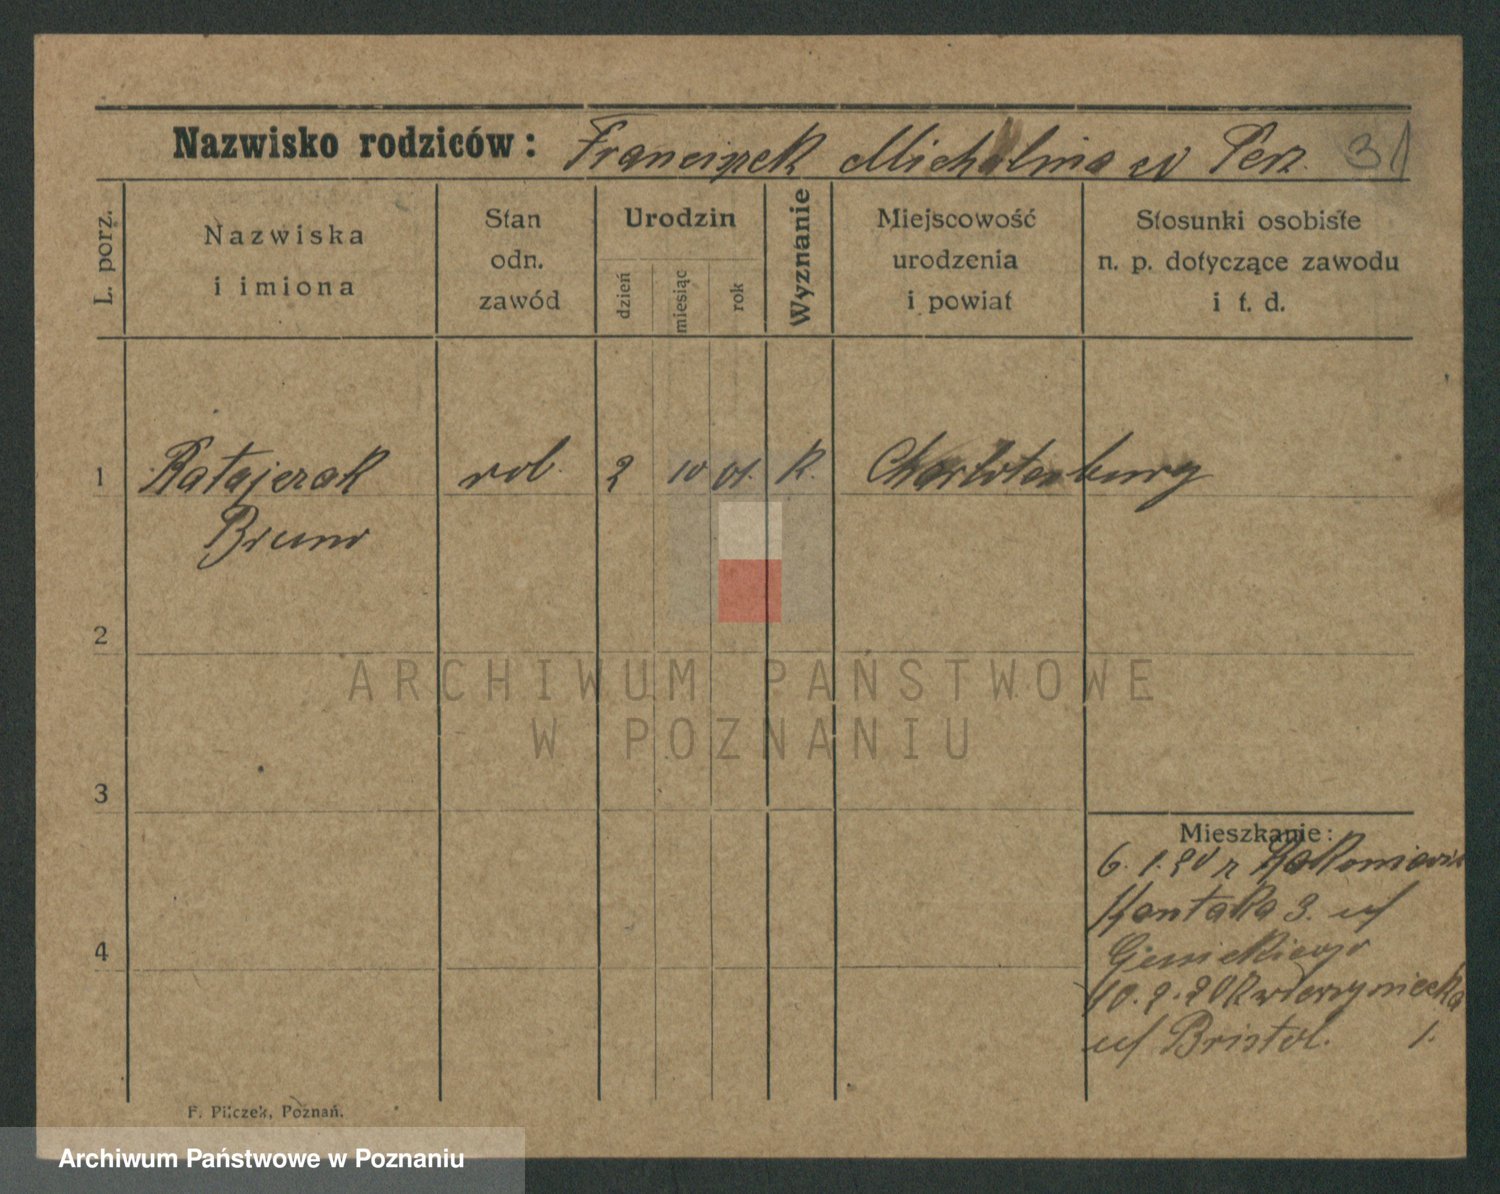 Nazwisko rodziców: Franciszek Michalina z Perz. 31
L. porz.
Nazwiska
i imiona
Stan
odn.
zawód
Urodzin
dzień
miesiąc
rok
Wyznanie
Miejscowość
urodzenia
i powiat
Stosunki osobiste
n. p. dotyczące zawodu
i t. d.
1 Ratajczak rob. 2 10 01. K. Charlotenburg
Bruno
2
3
4
Mieszkanie:
6. 1. 20 z
Kantaka 3. u/
10. 2. 20 Zwierzyniecka
u/ Bristol. 1.
F. Pilczek, Poznań.
ARCHIWUM PAŃSTWOWE
W POZNANIU
Archiwum Państwowe w Poznaniu